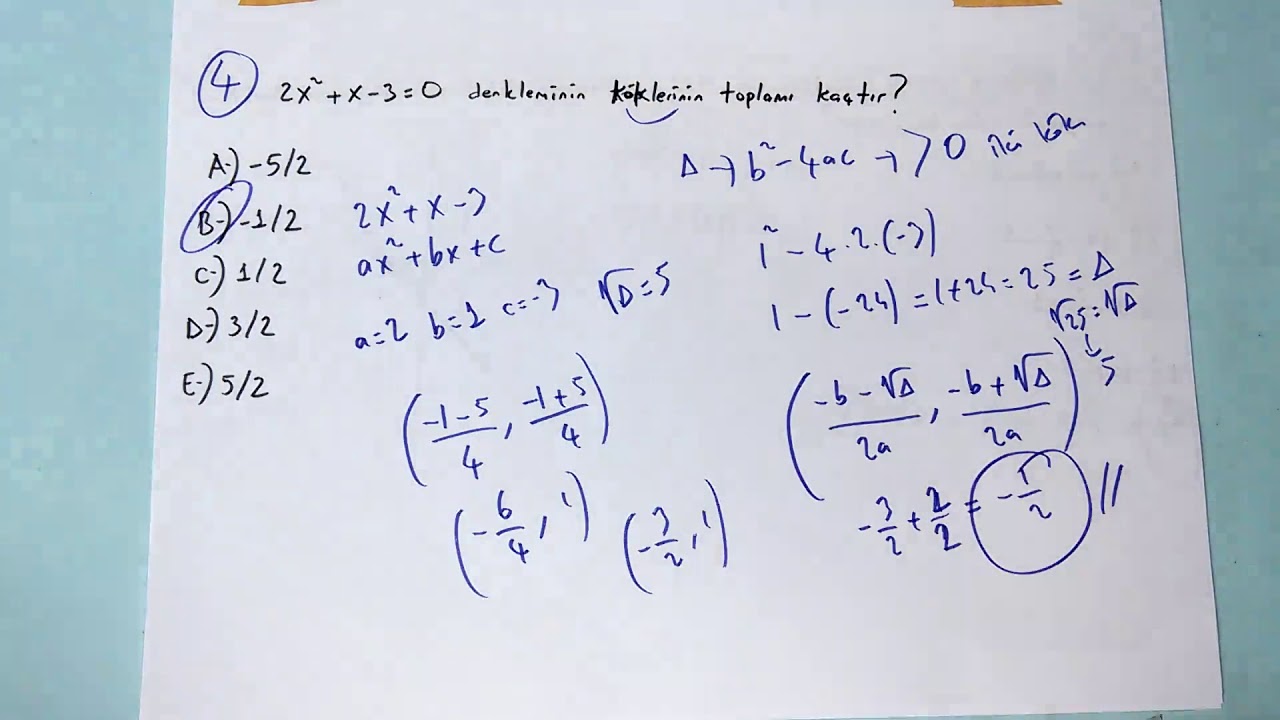 4 2x² + x - 3 = 0 denkleminin köklerinin toplamı kaçtır?
A-) -5/2
B-) -1/2
C-) 1/2
D-) 3/2
E-) 5/2
2x² + x - 3
ax² + bx + c
a=2 b=1 c=-3 √Δ = 5
(-1-5/4, -1+5/4)
(-6/4, 1) (-3/2, 1)
Δ → b² - 4ac → > 0 iki kök
1² - 4.2.(-3)
1 - (-24) = 1+24 = 25 = Δ
√25 = √Δ
5
(-b-√Δ/2a, -b+√Δ/2a)
-3/2 + 2/2 = -1/2 //